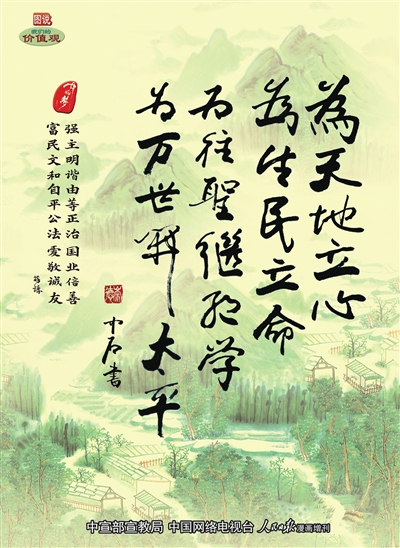 图说
我们的
价值观
為天地立心
為生民立命
为往聖繼绝学
为万世開太平
中石書
中国梦
富强
民主
文明
和谐
自由
平等
公正
法治
爱国
敬业
诚信
友善
中宣部宣教局 中国网络电视台 人民日报漫画增刊